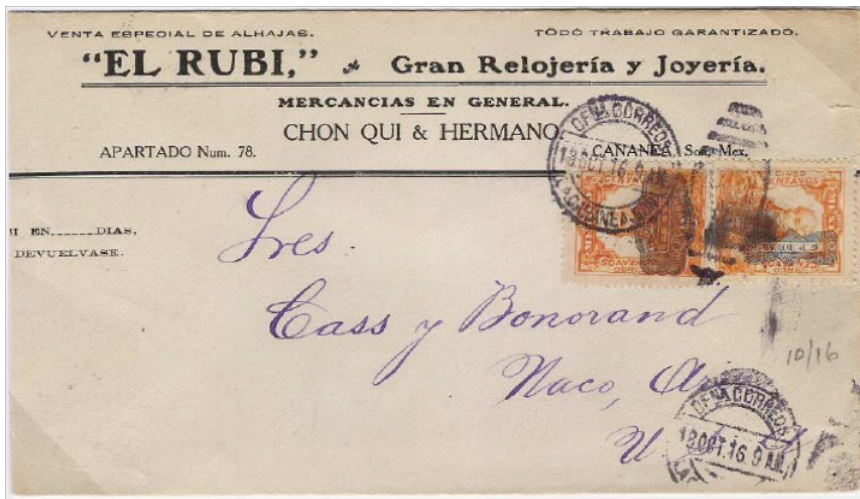 VENTA ESPECIAL DE ALHAJAS.
TODO TRABAJO GARANTIZADO.
"EL RUBI," Gran Relojería y Joyería.
MERCANCIAS EN GENERAL.
CHON QUI & HERMANO.
APARTADO Num. 78.
CANANEA, Son. Mex.
OFNA. CORREOS
18 OCT. 16. 9 A.M.
CINCO
CENTAVOS
EN DIAS,
DEVUELVASE.
Sres.
Cass y Bonorand
Naco,
U
10/16
OFNA. CORREOS
18 OCT. 16. 9 A.M.